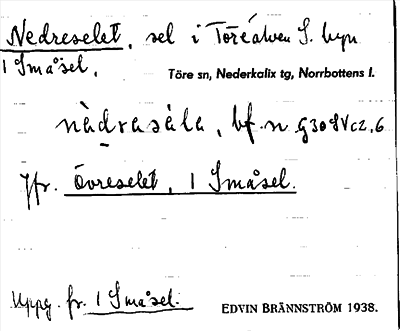 Nedreselet, sel i Töreälven S. byn
1 Småsel.
Töre sn, Nederkalix tg, Norrbottens l.
nèdrasèla, bf. n G30SVc2,6
Jfr. Övreselet, 1 Småsel.
Uppg. fr. 1 Småsel.
EDVIN BRÄNNSTRÖM 1938.